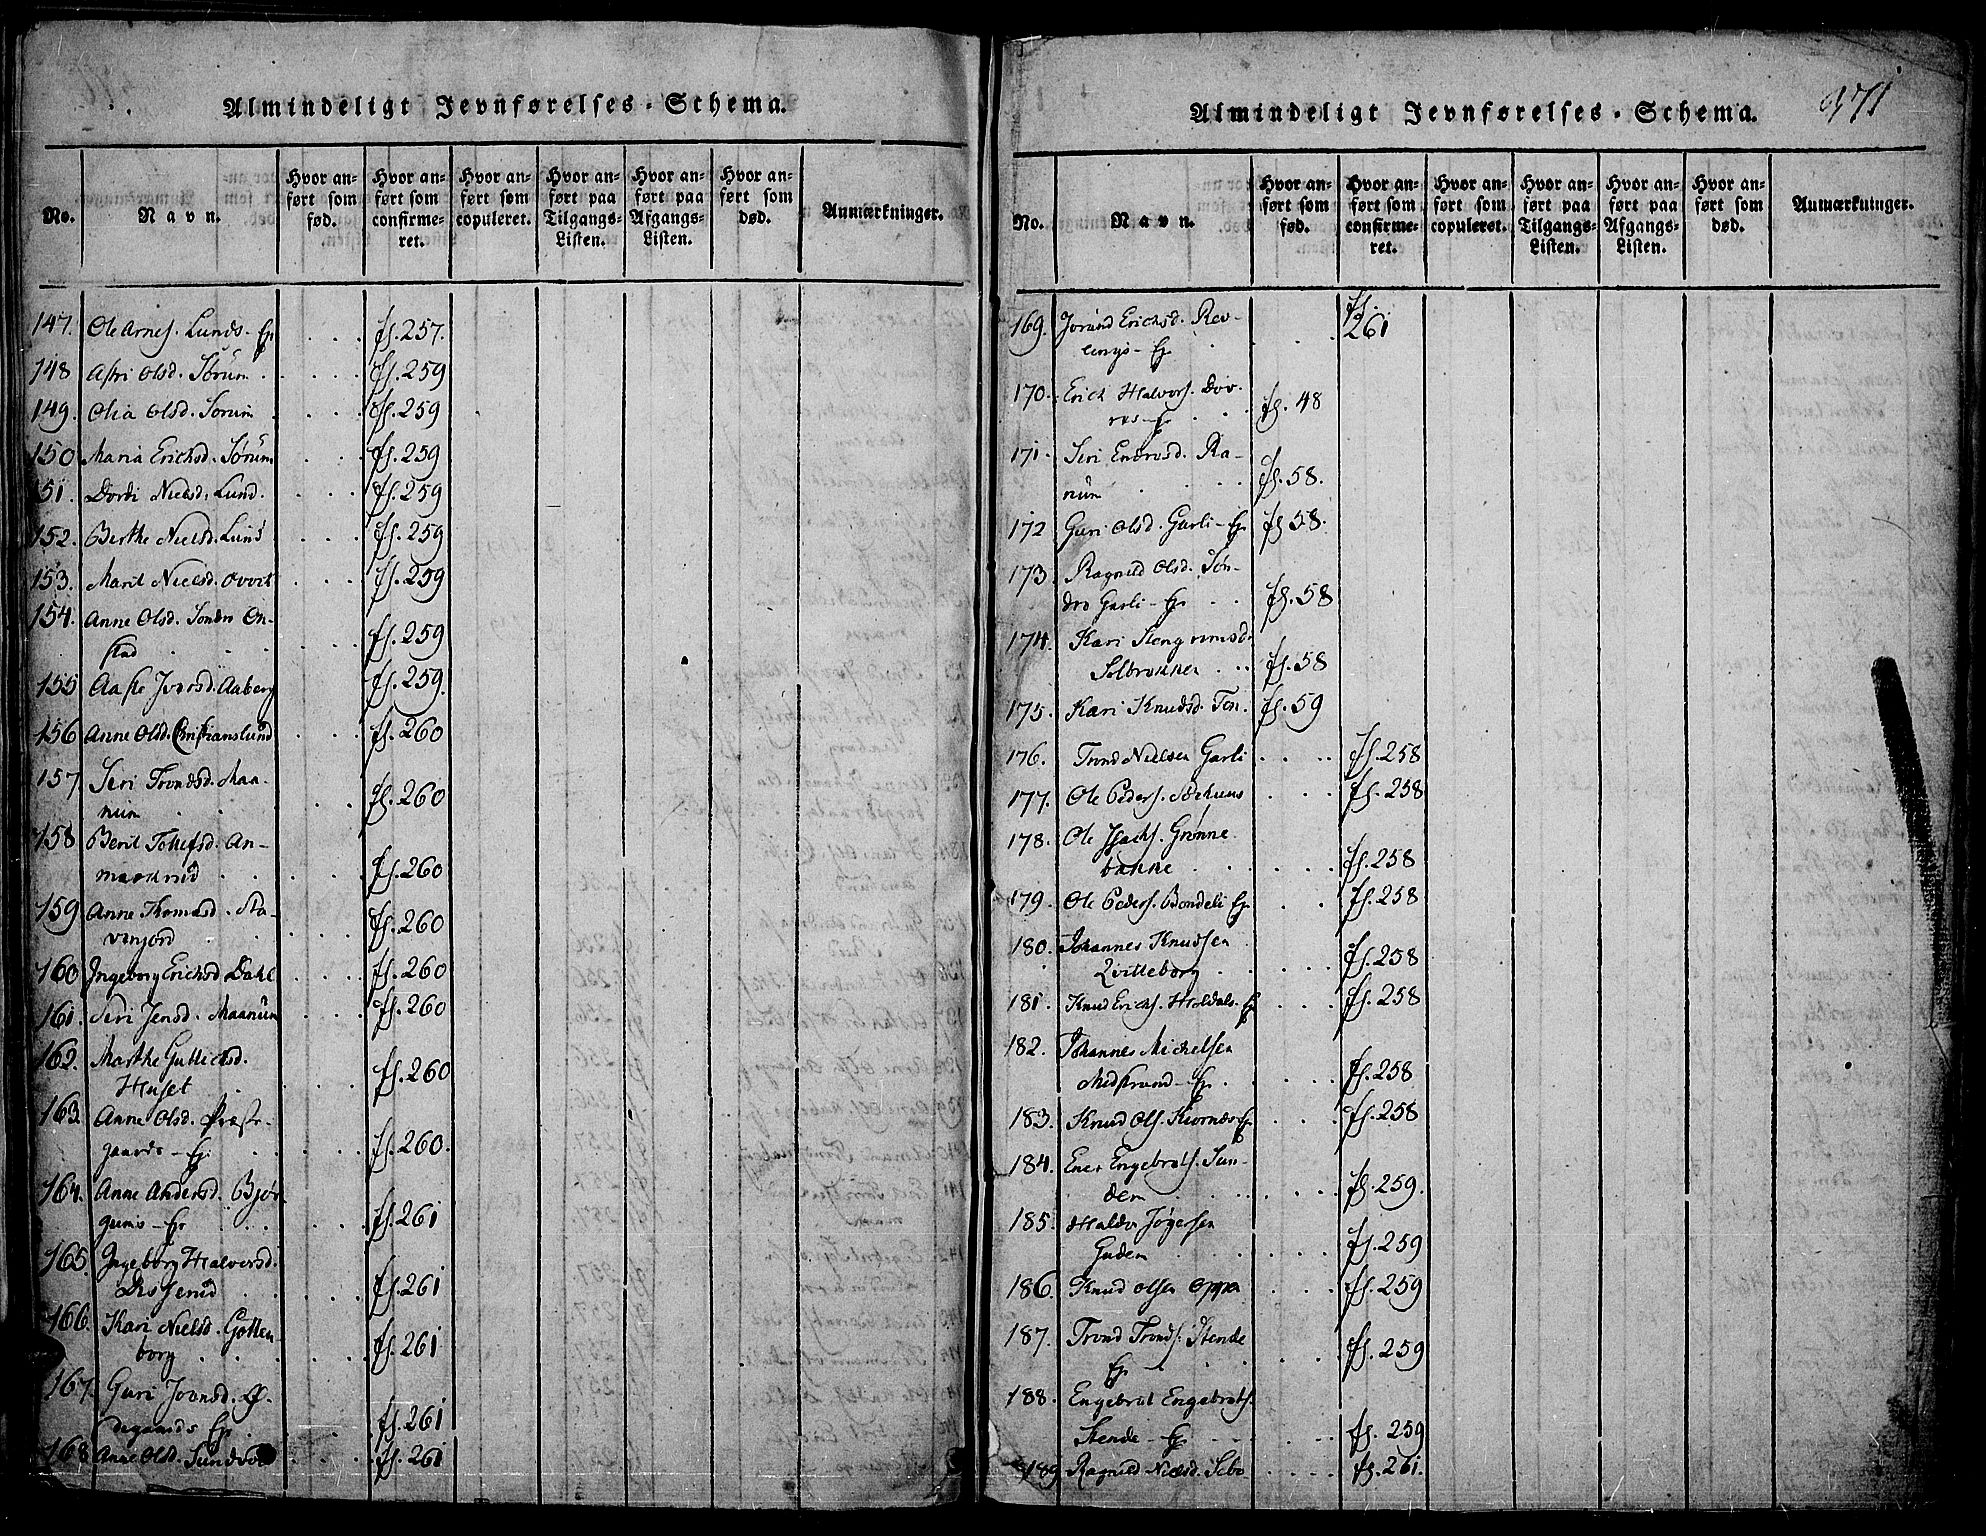 Almindeligt Jevnførelses-Schema.
No.
Navn.
Hvor anført som fød.
Hvor anført som confirmeret.
Hvor anført som copuleret.
Hvor anført paa Tilgangs-Listen.
Hvor anført paa Afgangs-Listen.
Hvor anført som død.
Anmærkninger.
147. Ole Arnes. Lunds-Ej. fl. 257.
148 Astri Olsd. Sørum fl. 259
149. Olia Olsd. Sørum fl. 259
150 Maria Erichsd. Sørum fl. 259
151. Dordi Nielsd. Lund. fl. 259
152. Berthe Nielsd. Lund fl. 259
153. Marit Nielsd. fl. 259
154. Anne Olsd. Søndr On-
stad fl. 259
155 Aaste Iversd. Aaberg fl. 259.
156 Anne Olsd. Christianslund fl. 260
157 Siri Trondsd. Maa-
num fl. 260
158 Berit Tollefsd. An-
marcknud fl. 260
159 Anne Thomasd. Sta-
venjord fl. 260
160 Ingeborg Erichsd. Dahl fl. 260
161. Siri Jensd. Maanum fl. 260
162. Marthe Gullichsd.
Huset fl. 260
163. Anne Olsd. Præste-
gaards-Ej. fl. 260.
164. Anne Andersd. Bjør-
gums-Ej. fl. 261
165 Ingeborg Halvorsd.
Disserud fl. 261
166. Kari Nielsd. Gotten-
borg fl. 261
167. Guri Joensd. Ø-
degaards Ej. fl. 261
168 Anne Olsd. Sundvol fl. 261
Almindeligt Jevnførelses-Schema.
371
No.
Navn.
Hvor anført som fød.
Hvor anført som confirmeret.
Hvor anført som copuleret.
Hvor anført paa Tilgangs-Listen.
Hvor anført paa Afgangs-Listen.
Hvor anført som død.
Anmærkninger.
169. Jorund Erichsd. Rev-
lings-Ej. fl. 261
170. Erich Halvors. Dov-
res-Ej. fl. 48
171. Siri Endresd. Ra-
num fl. 58.
172 Guri Olsd. Garli-Ej. fl. 58.
173. Ragnild Olsd. Søn-
dre Garli-Ej. fl. 58
174. Kari Stengrimsd.
Solbrekken fl. 58
175. Kari Knudsd. Ton. fl. 59
176. Trond Nielsen Garli fl. 258
177. Ole Peders. fl. 258
178. Ole Isachs. Grønne-
bakke fl. 258
179. Ole Peders. Bondeli Ej. fl. 258
180. Johannes Knudsen
Qvitteborg fl. 258
181. Knud Erichs. Holdals-Ej. fl. 258
182. Johannes Michelsen
Midstrand-Ej. fl. 258
183. Knud Ols. Kvernes Ej. fl. 258
184. Ener Engebrets. Sun-
dem fl. 259.
185. Haldo Jøgersen
Guden fl. 259
186. Knud Olsen Oppa fl. 259
187. Trond Tronds. Stende
Ej. fl. 259
188. Engebret Engebrets.
Stende-Ej. fl. 259
189 Ragnild Nielsd. Sebo fl. 261.